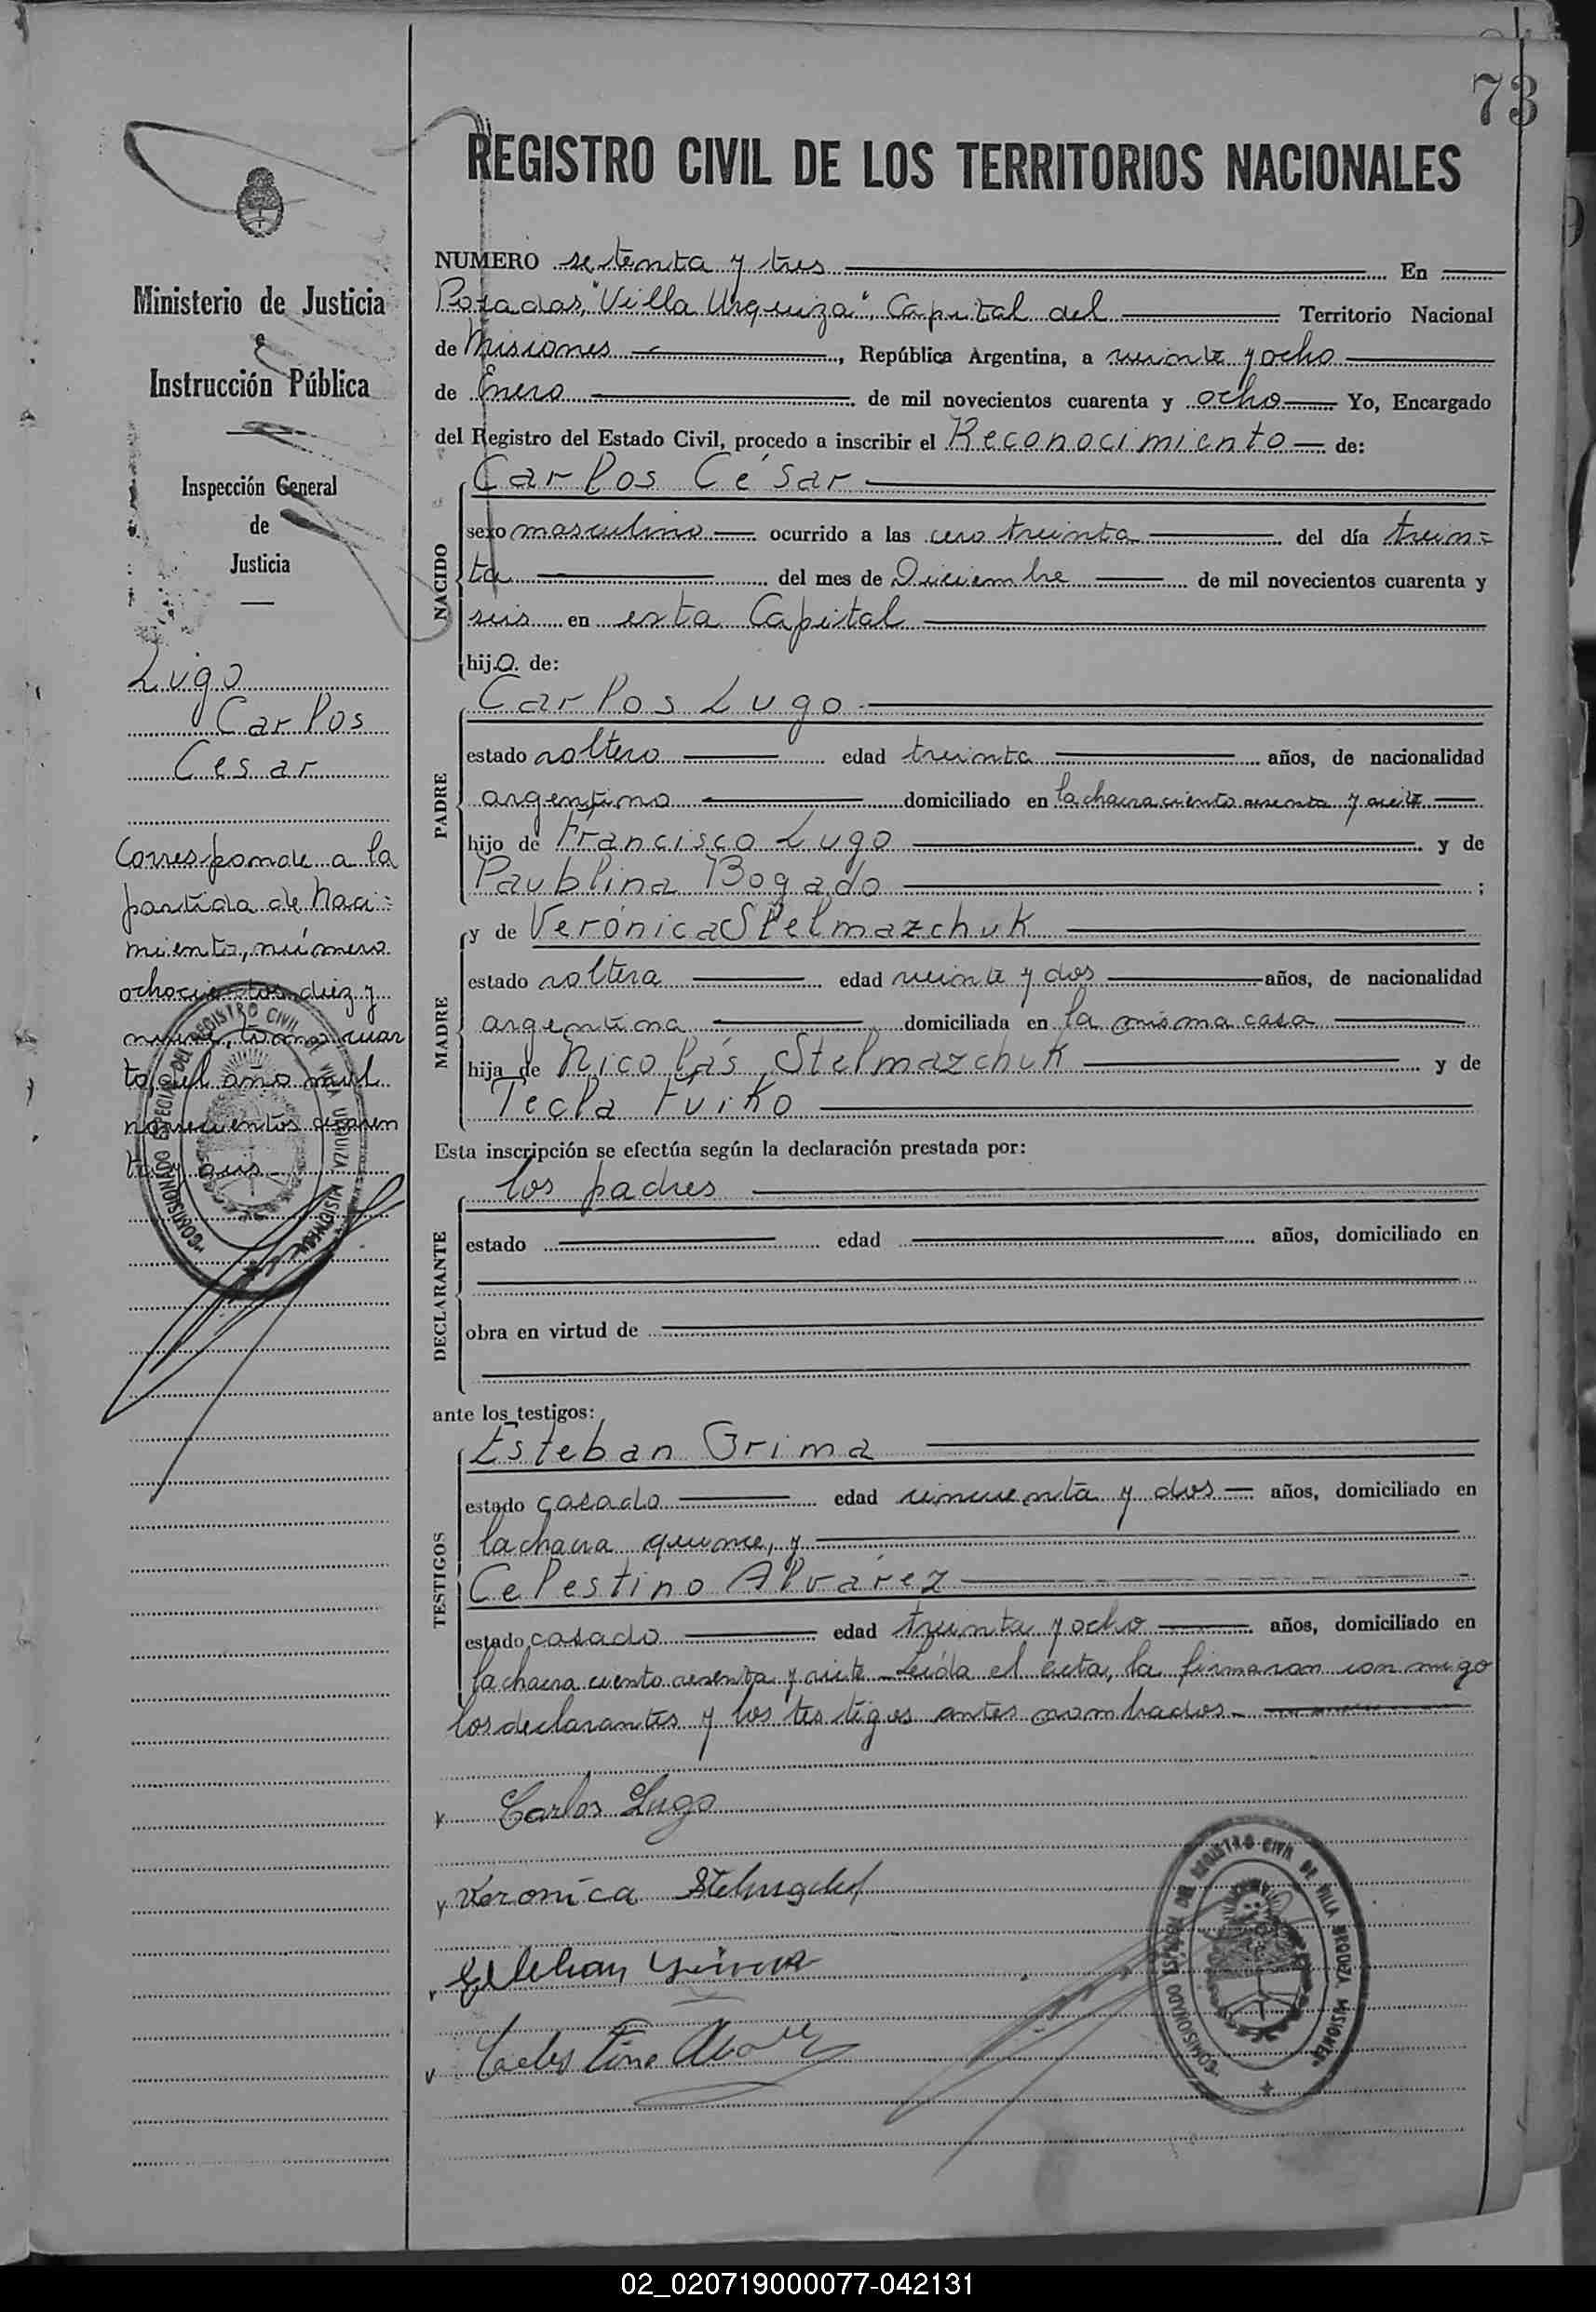 73
REGISTRO CIVIL DE LOS TERRITORIOS NACIONALES
Ministerio de Justicia
e
Instrucción Pública
Inspección General
de
Justicia
Lugo
Carlos
Cesar
Corresponde a la
partida de Naci=
miento, número
ochocientos diez y
nueve, tomo cuar
to, del año mil
novecientos cuaren
ta y seis.-
COMISIONADO ESPECIAL DEL REGISTRO CIVIL DE VILLA URQUIZA MISIONES
NUMERO setenta y tres En
Posadas, "Villa Urquiza", Capital del Territorio Nacional
de Misiones, República Argentina, a veinte y ocho
de Enero de mil novecientos cuarenta y ocho Yo, Encargado
del Registro del Estado Civil, procedo a inscribir el Reconocimiento de:
NACIDO
Carlos César
sexo masculino ocurrido a las cero treinta del día trein=
ta del mes de Diciembre de mil novecientos cuarenta y
seis en esta Capital
hijo de:
PADRE
Carlos Lugo
estado soltero edad treinta años, de nacionalidad
argentino domiciliado en la chacra ciento sesenta y siete
hijo de Francisco Lugo y de
Paublina Bogado ;
MADRE
y de Verónica Stelmazchuk
estado soltera edad veinte y dos años, de nacionalidad
argentina domiciliada en la misma casa
hija de Nicolás Stelmazchuk y de
Tecla Fuiko
Esta inscripción se efectúa según la declaración prestada por:
DECLARANTE
los padres
estado edad años, domiciliado en
obra en virtud de
ante los testigos:
TESTIGOS
Esteban Grima
estado casado edad cincuenta y dos años, domiciliado en
la chacra quince, y
Celestino Alvárez
estado casado edad treinta y ocho años, domiciliado en
la chacra ciento sesenta y siete - Leída el acta, la firmaron conmigo
los declarantes y los testigos antes nombrados.-
Carlos Lugo
Veronica
Esteban Grima
COMISIONADO ESPECIAL DEL REGISTRO CIVIL DE VILLA URQUIZA MISIONES
02_020719000077-042131